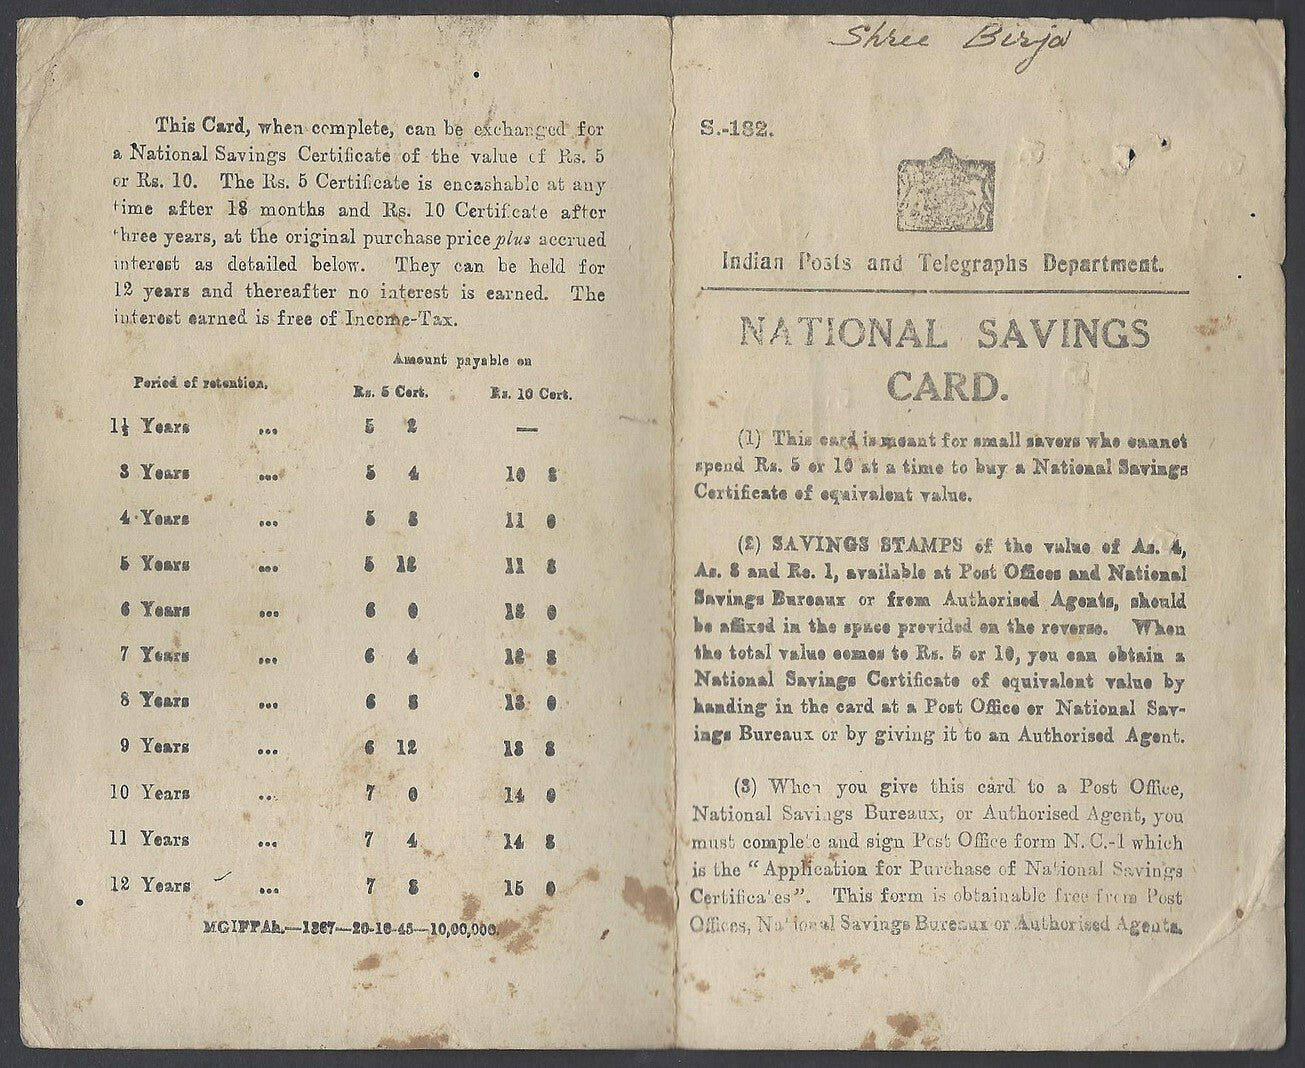 This Card, when complete, can be exchanged for
a National Savings Certificate of the value of Rs. 5
or Rs. 10. The Rs. 5 Certificate is encashable at any
time after 18 months and Rs. 10 Certificate after
three years, at the original purchase price plus accrued
interest as detailed below. They can be held for
12 years and thereafter no interest is earned. The
interest earned is free of Income-Tax.
Amount payable on
Period of retention. Rs. 5 Cert. Rs. 10 Cert.
1½ Years ... 5 2 —
3 Years ... 5 4 10 8
4 Years ... 5 8 11 0
5 Years ... 5 12 11 8
6 Years ... 6 0 12 0
7 Years ... 6 4 12 8
8 Years ... 6 8 13 0
9 Years ... 6 12 13 8
10 Years ... 7 0 14 0
11 Years ... 7 4 14 8
12 Years ... 7 8 15 0
MGIPFAh.—1367—20-10-45—10,00,000.
Shree Birja
S.-182.
Indian Posts and Telegraphs Department.
NATIONAL SAVINGS
CARD.
(1) This card is meant for small savers who cannot
spend Rs. 5 or 10 at a time to buy a National Savings
Certificate of equivalent value.
(2) SAVINGS STAMPS of the value of As. 4,
As. 8 and Re. 1, available at Post Offices and National
Savings Bureaux or from Authorised Agents, should
be affixed in the space provided on the reverse. When
the total value comes to Rs. 5 or 10, you can obtain a
National Savings Certificate of equivalent value by
handing in the card at a Post Office or National Sav-
ings Bureaux or by giving it to an Authorised Agent.
(3) When you give this card to a Post Office,
National Savings Bureaux, or Authorised Agent, you
must complete and sign Post Office form N.C.-1 which
is the "Application for Purchase of National Savings
Certificates". This form is obtainable free from Post
Offices, National Savings Bureaux or Authorised Agents.